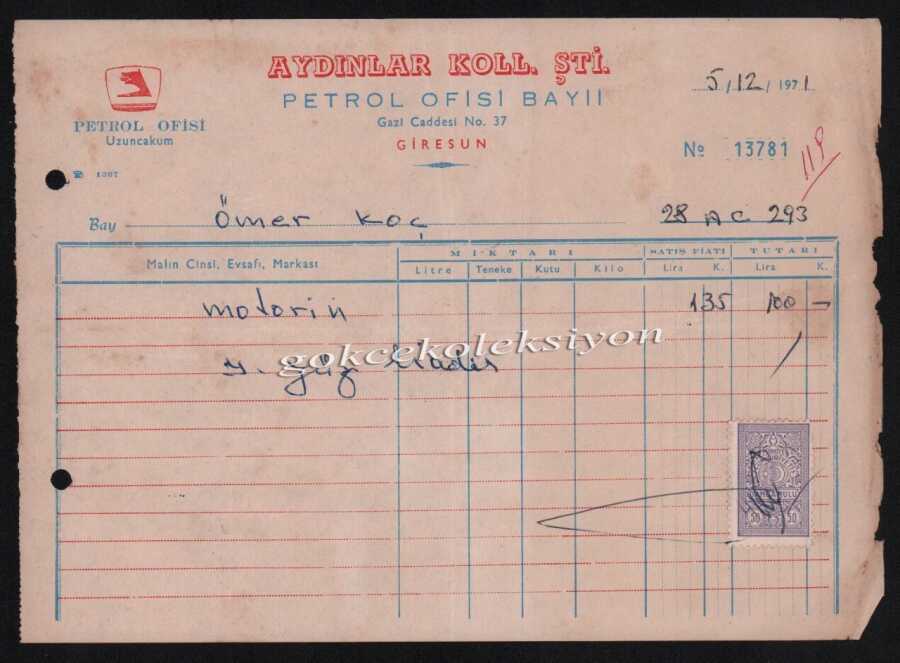 AYDINLAR KOLL. ŞTİ.
PETROL OFİSİ BAYII
Gazi Caddesi No. 37
GİRESUN
PETROL OFİSİ
Uzuncakum
☎ 1307
5/12/1971
No 13781
119
Bay Ömer Koç 28 AC 293
Malın Cinsi, Evsafı, Markası
MİKTARI SATIŞ FİATI TUTARI
Litre Teneke Kutu Kilo Lira K. Lira K.
motorin 135 100 —
y. yüz liradır
gokcekoleksiyon
30 30